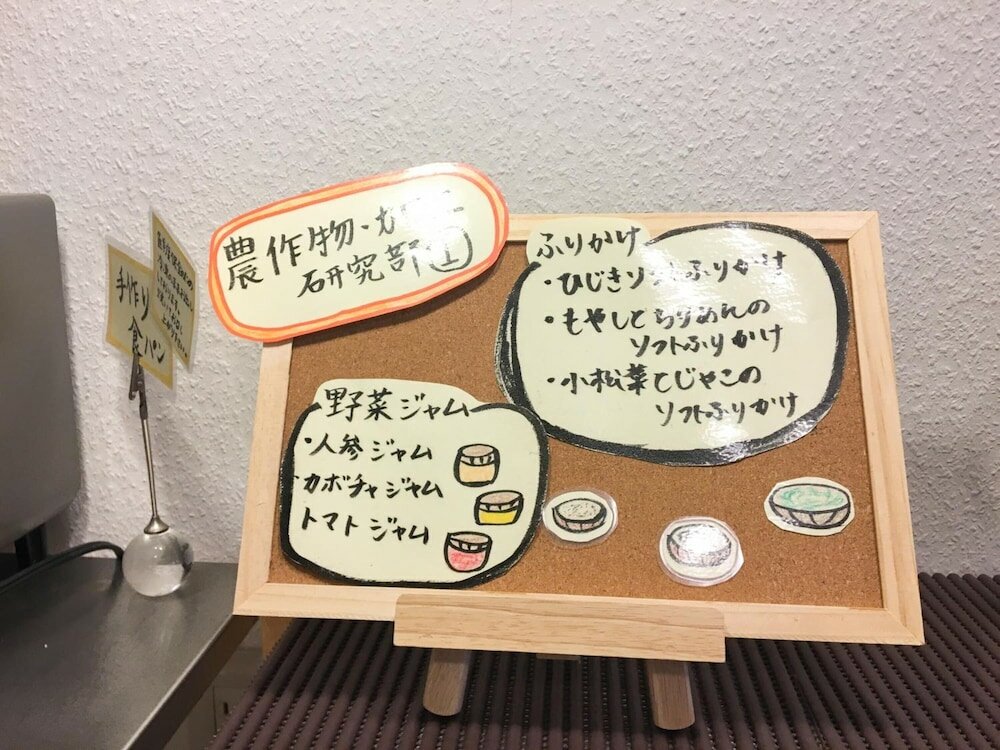 農作物・
研究部
ふりかけ
・ひじきソフトふりかけ
・もやしとちりめんの
ソフトふりかけ
・小松菜とじゃこの
ソフトふりかけ
野菜ジャム
・人参ジャム
・カボチャジャム
トマトジャム
手作り
食パン